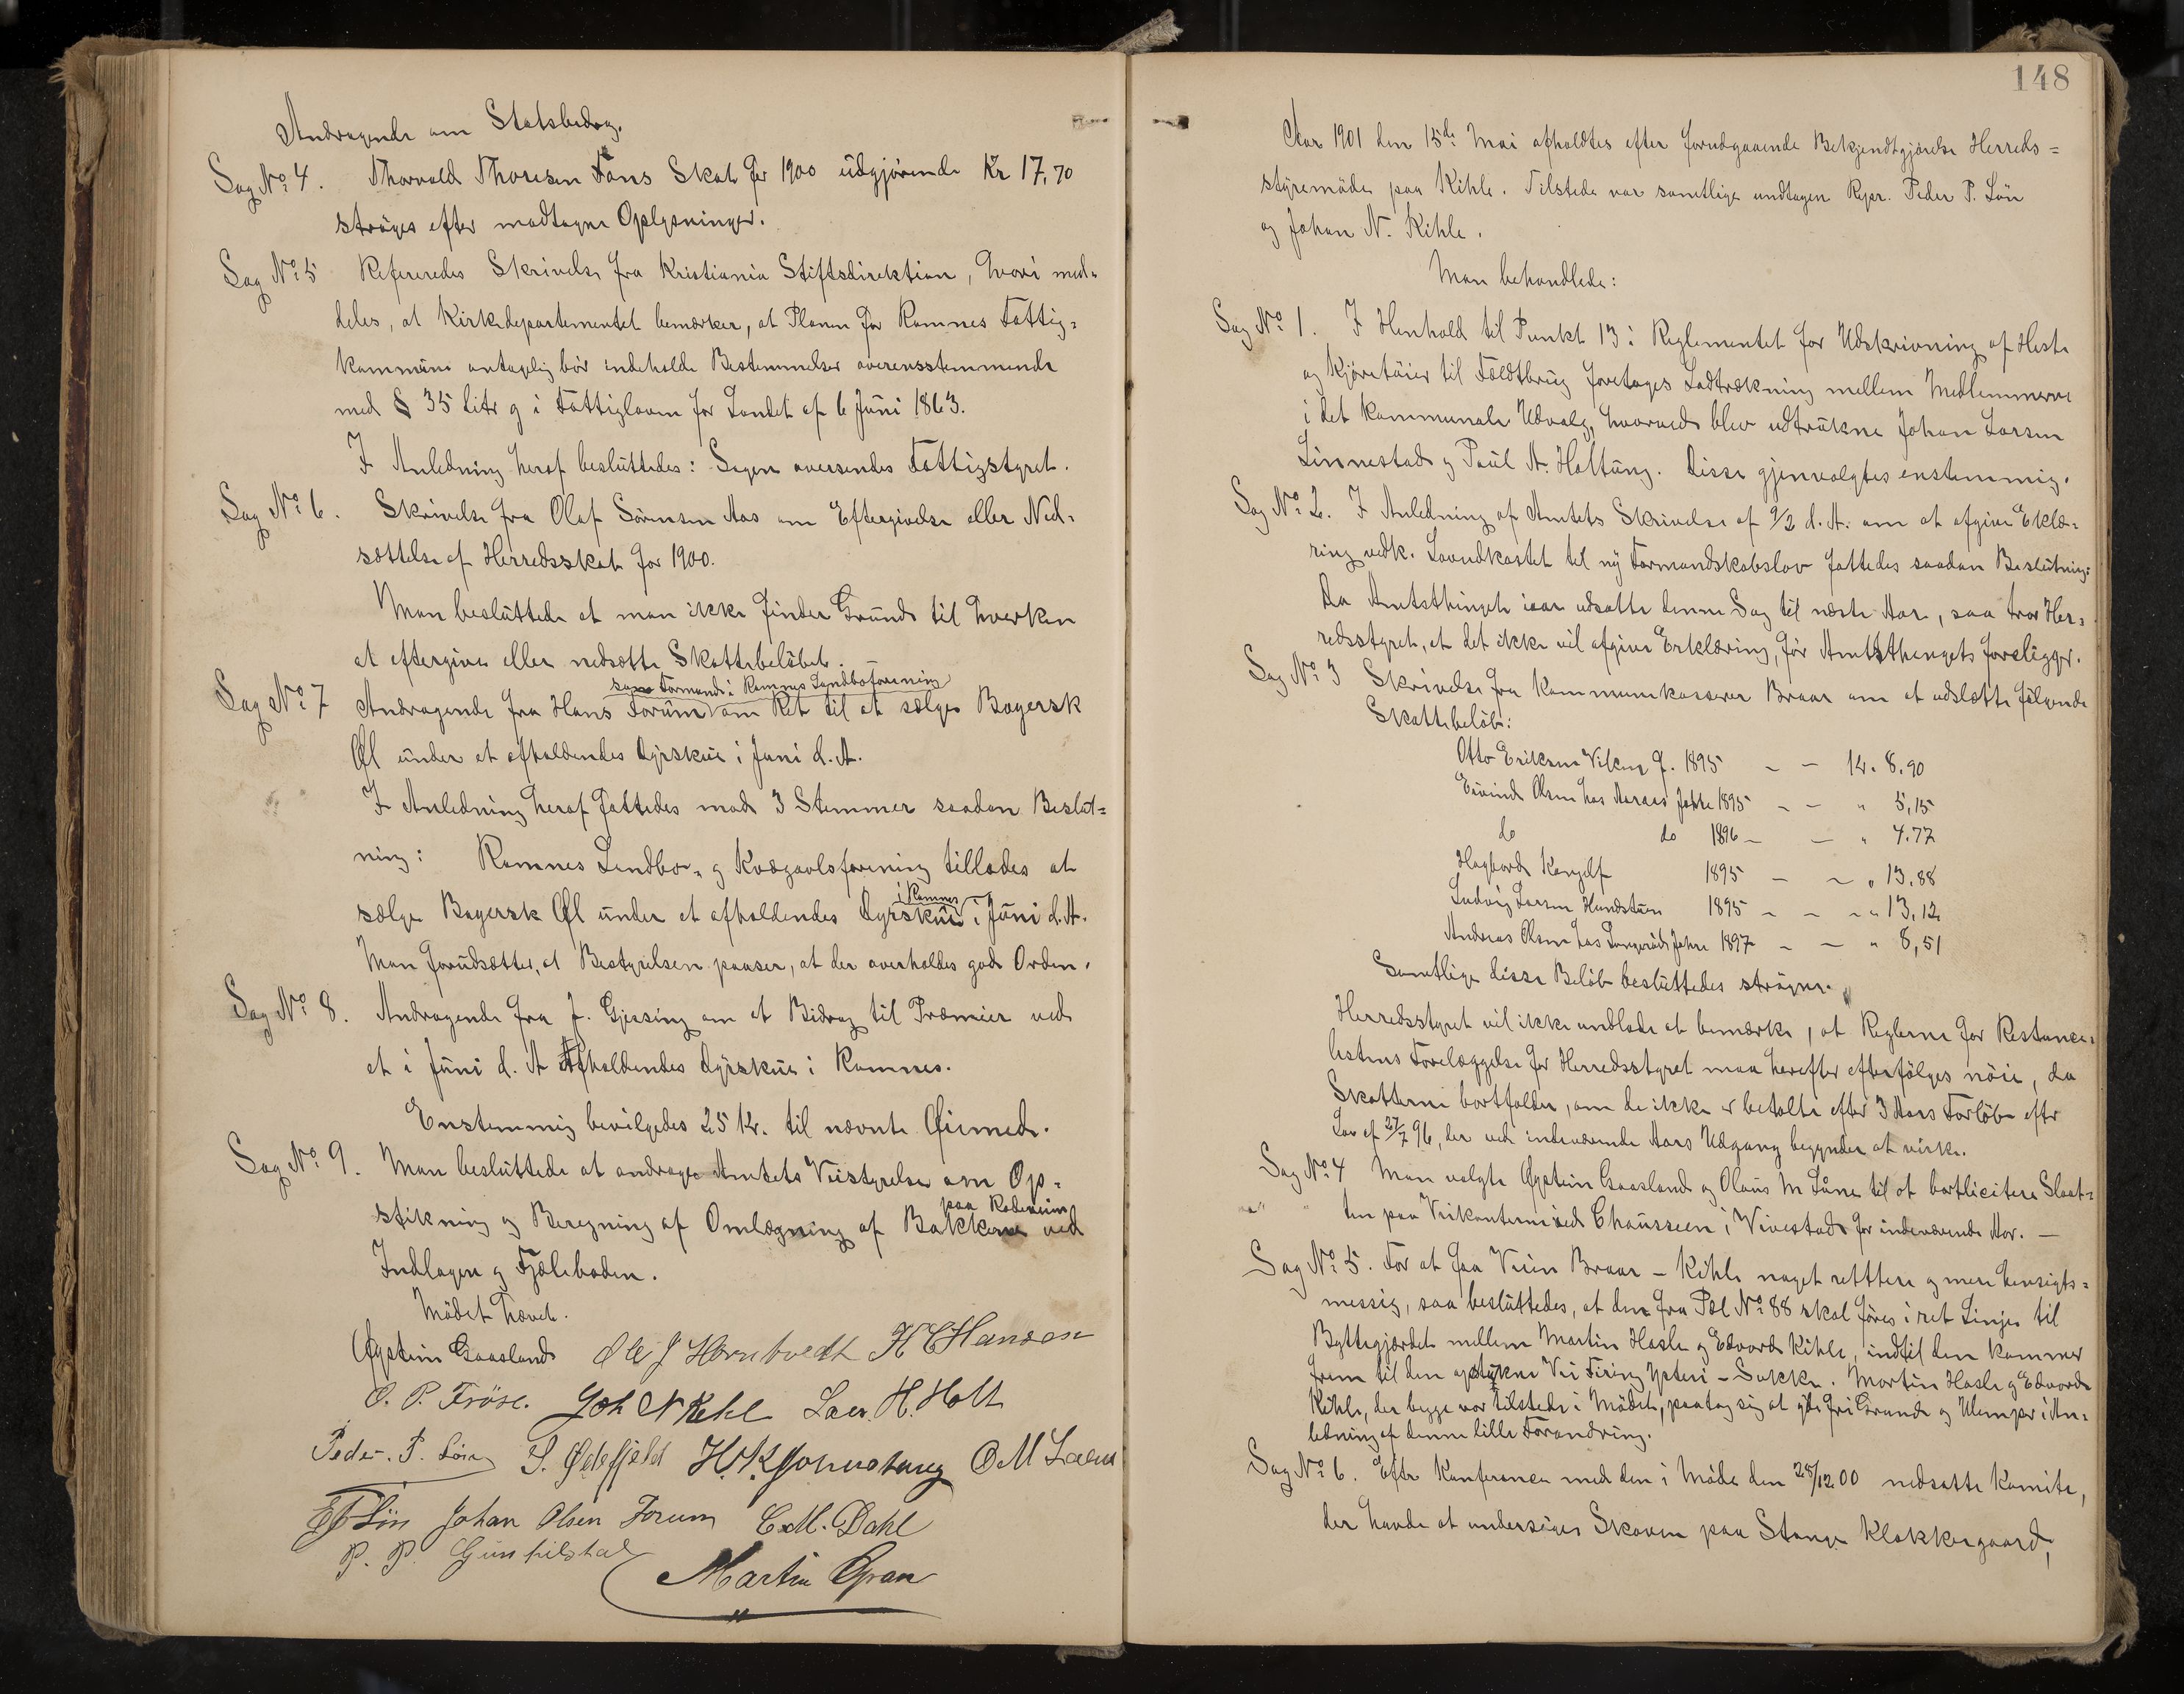 Andragende om Statsbidrag.
Sag No 4. Thorvald Thoresen Fons Skat for 1900 udgjørende Kr 17,70
strøges efter modtagne Oplysninger.
Sag No 5 Refereredes Skrivelse fra Kristiania Stiftsdirektion, hvori med-
deles, at Kirkedepartementet bemærker, at Planen for Ramnes Fattig-
kommune antagelig bør indeholde Bestemmelser overensstemmende
med § 35 Litr g i Fattigloven for Landet af 6 Juni 1863.
I Anledning heraf besluttedes: Sagen oversendes Fattigstyret.
Sag No 6. Skrivelse fra Olaf Sörensen Aas om Eftergivelse eller Ned-
sættelse af Herredsskat for 1900.
Man besluttede at man ikke finder Grund til hverken
at eftergive eller nedsætte Skattebeløbet.
som Formand i Ramnes Landboforening
Sag No 7 Andragende fra Hans Forum om Ret til at sælge Bayersk
Øl under et afholdendes Dyrskue i Juni d. A.
I Anledning heraf fattedes mod 3 Stemmer saadan Beslut-
ning: Ramnes Landbo- og Kvægavlsforening tillades at
i Ramnes
sælge Bayersk Øl under et afholdendes Dyrskue i Juni d. A.
Man forudsætter, at Bestyrelsen paaser, at der overholdes god Orden.
Sag No 8. Andragende fra J. Gjessing om et Bidrag til Præmier ved
et i Juni d. A Afholdendes Dyrskue i Ramnes.
Enstemmig bevilgedes 25 Kr. til nævnte Øiemed.
Sag No 9. Man besluttede at andrage Amtets Veistyrelse om Op-
paa Radeveien
stikning og Beregning af Omlægning af Bakkerne ved
Indlagen og Fjæleboden.
Mödet hævet.
Øystein Gaasland Ole J Horntvedt H C Hanson
O. P. Fröse. Joh N Kehl Laur. H. Holt
Peder. P. Lön S. Ødefjeld H. K. O M
Lön Johan Olsen Forum C. M. Dahl
P. P. Gunhilstad
Martin Gran
148
Aar 1901 den 15de Mai afholdtes efter forudgaaende Bekjendtgjørelse Herreds-
styremöde paa Kihle. Tilstede var samtlige undtagen Repr. Peder P. Lön
og Johan N. Kihle.
Man behandlede:
Sag No 1. I Henhold til Punkt 13 i Reglementet for Udskrivning af Heste
og Kjøretøier til Feldtbrug foretages Lodtrækning mellem Medlemmerne
i det kommunale Udvalg, hvorved blev udtrukne Johan Larsen
Linnestad og Paul A. Holtung. Disse gjenvalgtes enstemmig.
Sag No 2. I Anledning af Amtets Skrivelse af 9/2 d. A. om at afgive Eklæ-
ring vedk. Lovudkastet til ny Formandskabslov fattedes saadan Beslutning:
Da Amtsthinget iaar udsatte denne Sag til næste Aar, saa tror Her-
redsstyret, at det ikke vil afgive Erklæring, før Amtsthingets foreligger.
Sag No 3 Skrivelse fra Kommunekasserer Braar om at udslette følgende
Skattebeløb:
Otto Eriksen Viken f. 1895 - - Kr. 8,90
Eivind Olsen hos Aaraas Jahre 1895 - - " 5,15
do do 1896 - - " 4.77
Hagbard Kongelf 1895 - - " 13.88
Ludvig Larsen Hundstuen 1895 - - - " 13,12
Andreas Olsen hos Langerød Jahre 1897 - - " 8,51
Samtlige disse Beløb besluttedes strøgne.
Herredsstyret vil ikke undlade at bemærke, at Reglerne for Restance-
listens Forelæggelse for Herredsstyret maa herefter efterfølges nøie, da
Skatterne bortfalder, om de ikke er betalte efter 3 Aars Forløb eftr
Lov af 27/7 96, der ved indeværende Aars Udgang begynder at virke.
Sag No 4 Man valgte Øystein Gaasland og Olaus M Lüne til at bortlicitere Slaat-
ten paa Veikanterne ved Chausseen i Vivestad for indeværende Aar. —
Sag No 5. For at faa Veien Braar - Kihle noget rettere og mere hensigts-
messig, saa besluttedes, at den fra Pæl No 88 skal føres i ret Linje til
Byttegjærdet mellem Martin Hasle og Edvard Kihle, indtil den kommer
frem til den opstukne Vei Firing Ysteri - Sukke. Martin Hasle og Edvard
Kihle, der begge var tilstede i Mødet, paatog sig at yde fri Grund og Ulemper i An-
ledning af denne lille Forandring.
Sag No 6. Eftr Konferance med den i Møde den 28/12 00 nedsatte Komite,
der havde at undersøge Skoven paa Stange Klokkergaard,